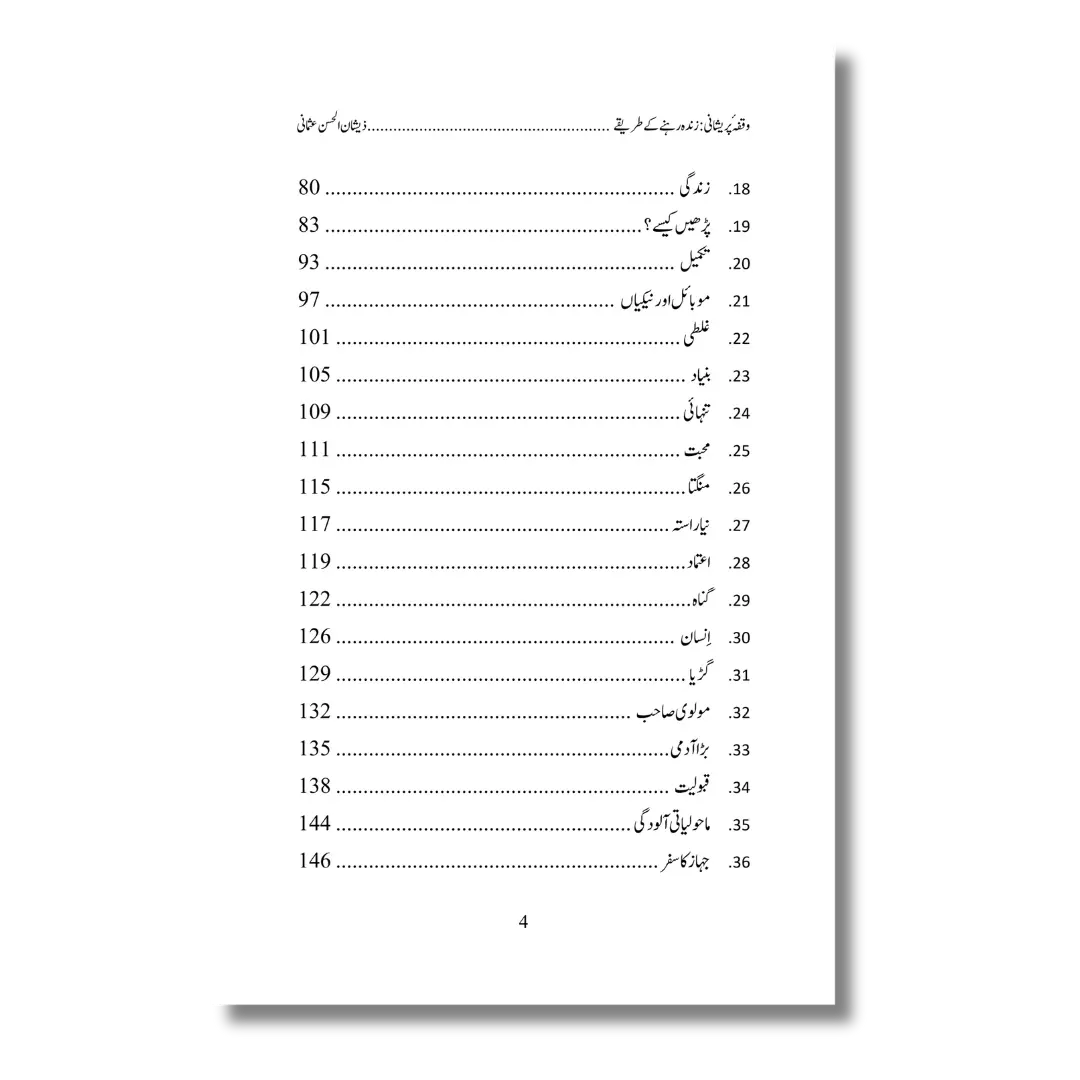 وقفہٴ پریشانی: زندہ رہنے کے طریقے ........................................................ ذیشان الحسن عثمانی
18. زندگی ...................................................... 80
19. پڑھیں کیسے؟ ................................................. 83
20. تکمیل ...................................................... 93
21. موبائل اور نیکیاں ............................................. 97
22. غلطی ..................................................... 101
23. بنیاد ...................................................... 105
24. تنہائی ..................................................... 109
25. محبت ..................................................... 111
26. منگتا ...................................................... 115
27. نیا راستہ ................................................... 117
28. اعتماد ...................................................... 119
29. گناہ ....................................................... 122
30. اِنسان .................................................... 126
31. گڑیا ...................................................... 129
32. مولوی صاحب .............................................. 132
33. بڑا آدمی ................................................... 135
34. قبولیت ................................................... 138
35. ماحولیاتی آلودگی .............................................. 144
36. جہاز کا سفر .................................................. 146
4